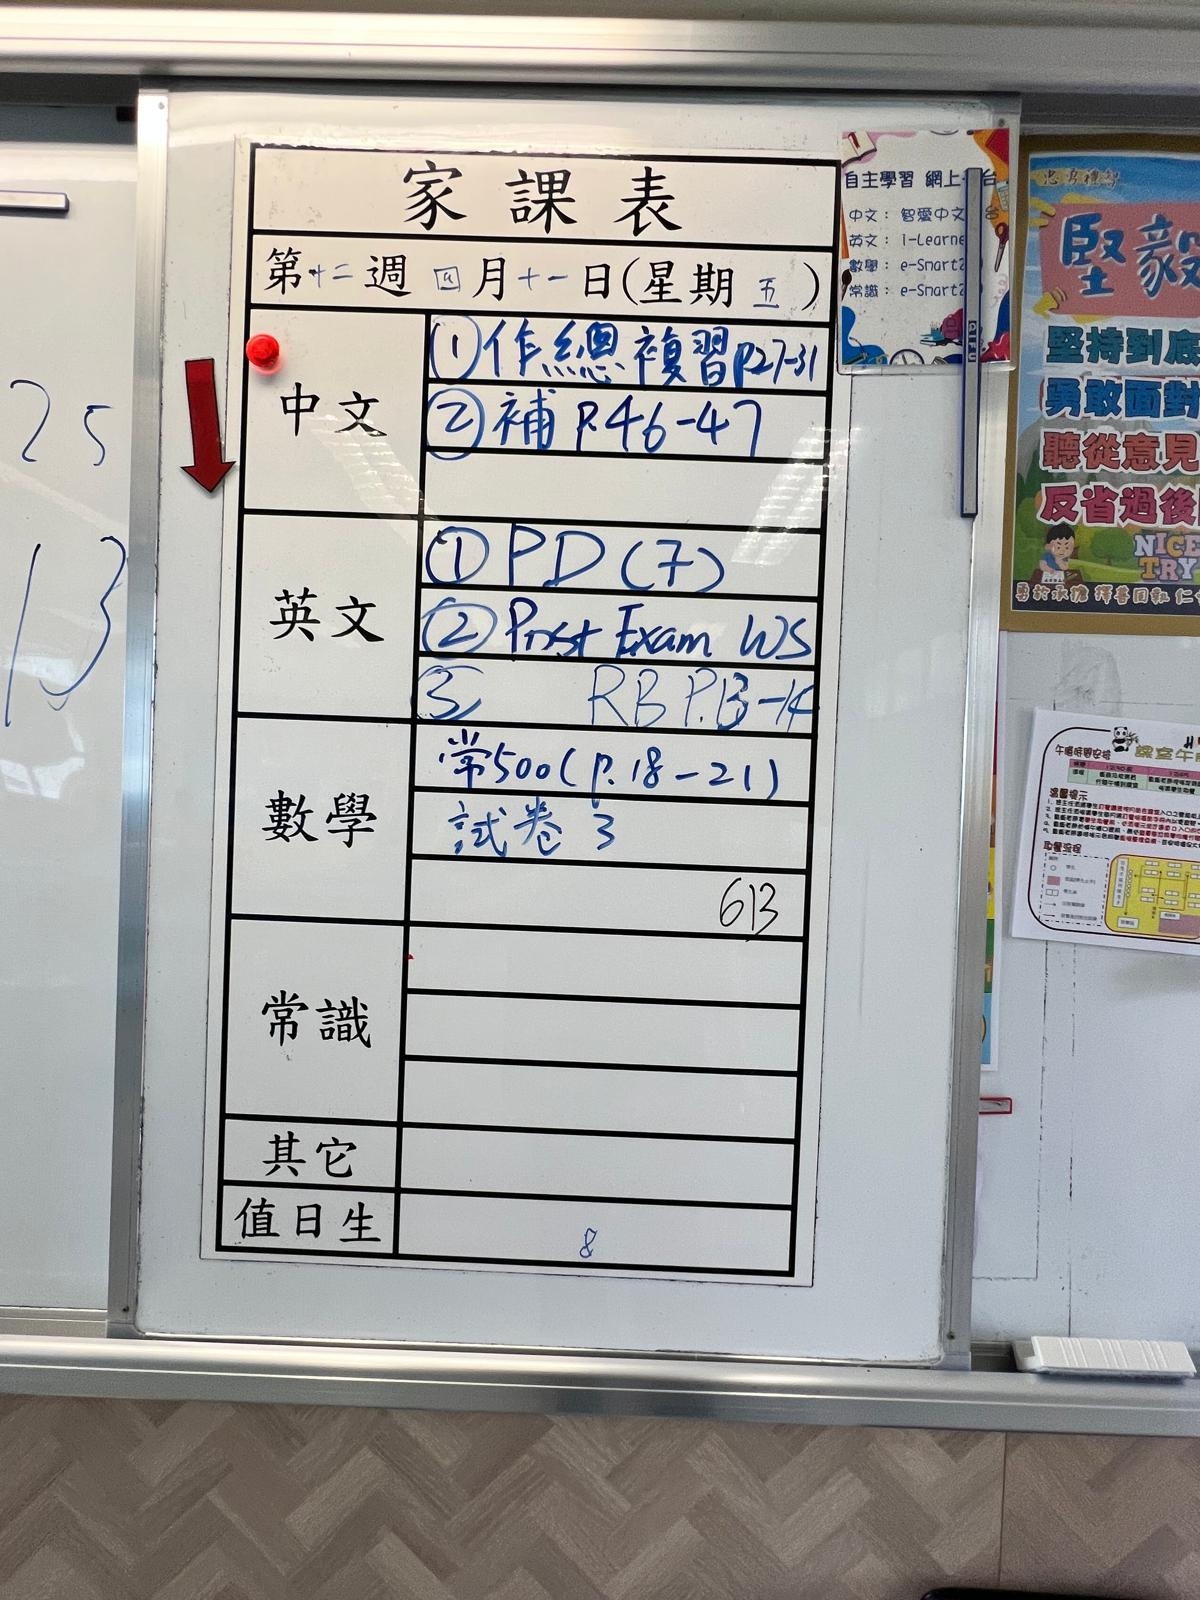 家課表
第十二週 四月十一日(星期五)
中文
①作總複習P.27-31
②補 P.46-47
英文
①PD(7)
② Post Exam WS
③ RB P.13-14
數學
常500(P.18-21)
試卷 3
613
常識
其它
值日生
8
25
13
自主學習 網上
台
中文：智愛中文
台
英文：i-Learne
數學：e-Smart
常識：e-Smart
堅毅
堅持到底
勇敢面對
聽從意見
反省過後
NICE
TRY
勇於承擔 擇善固執 仁
午膳時間安排
課室午
溫馨提示
取餐流程